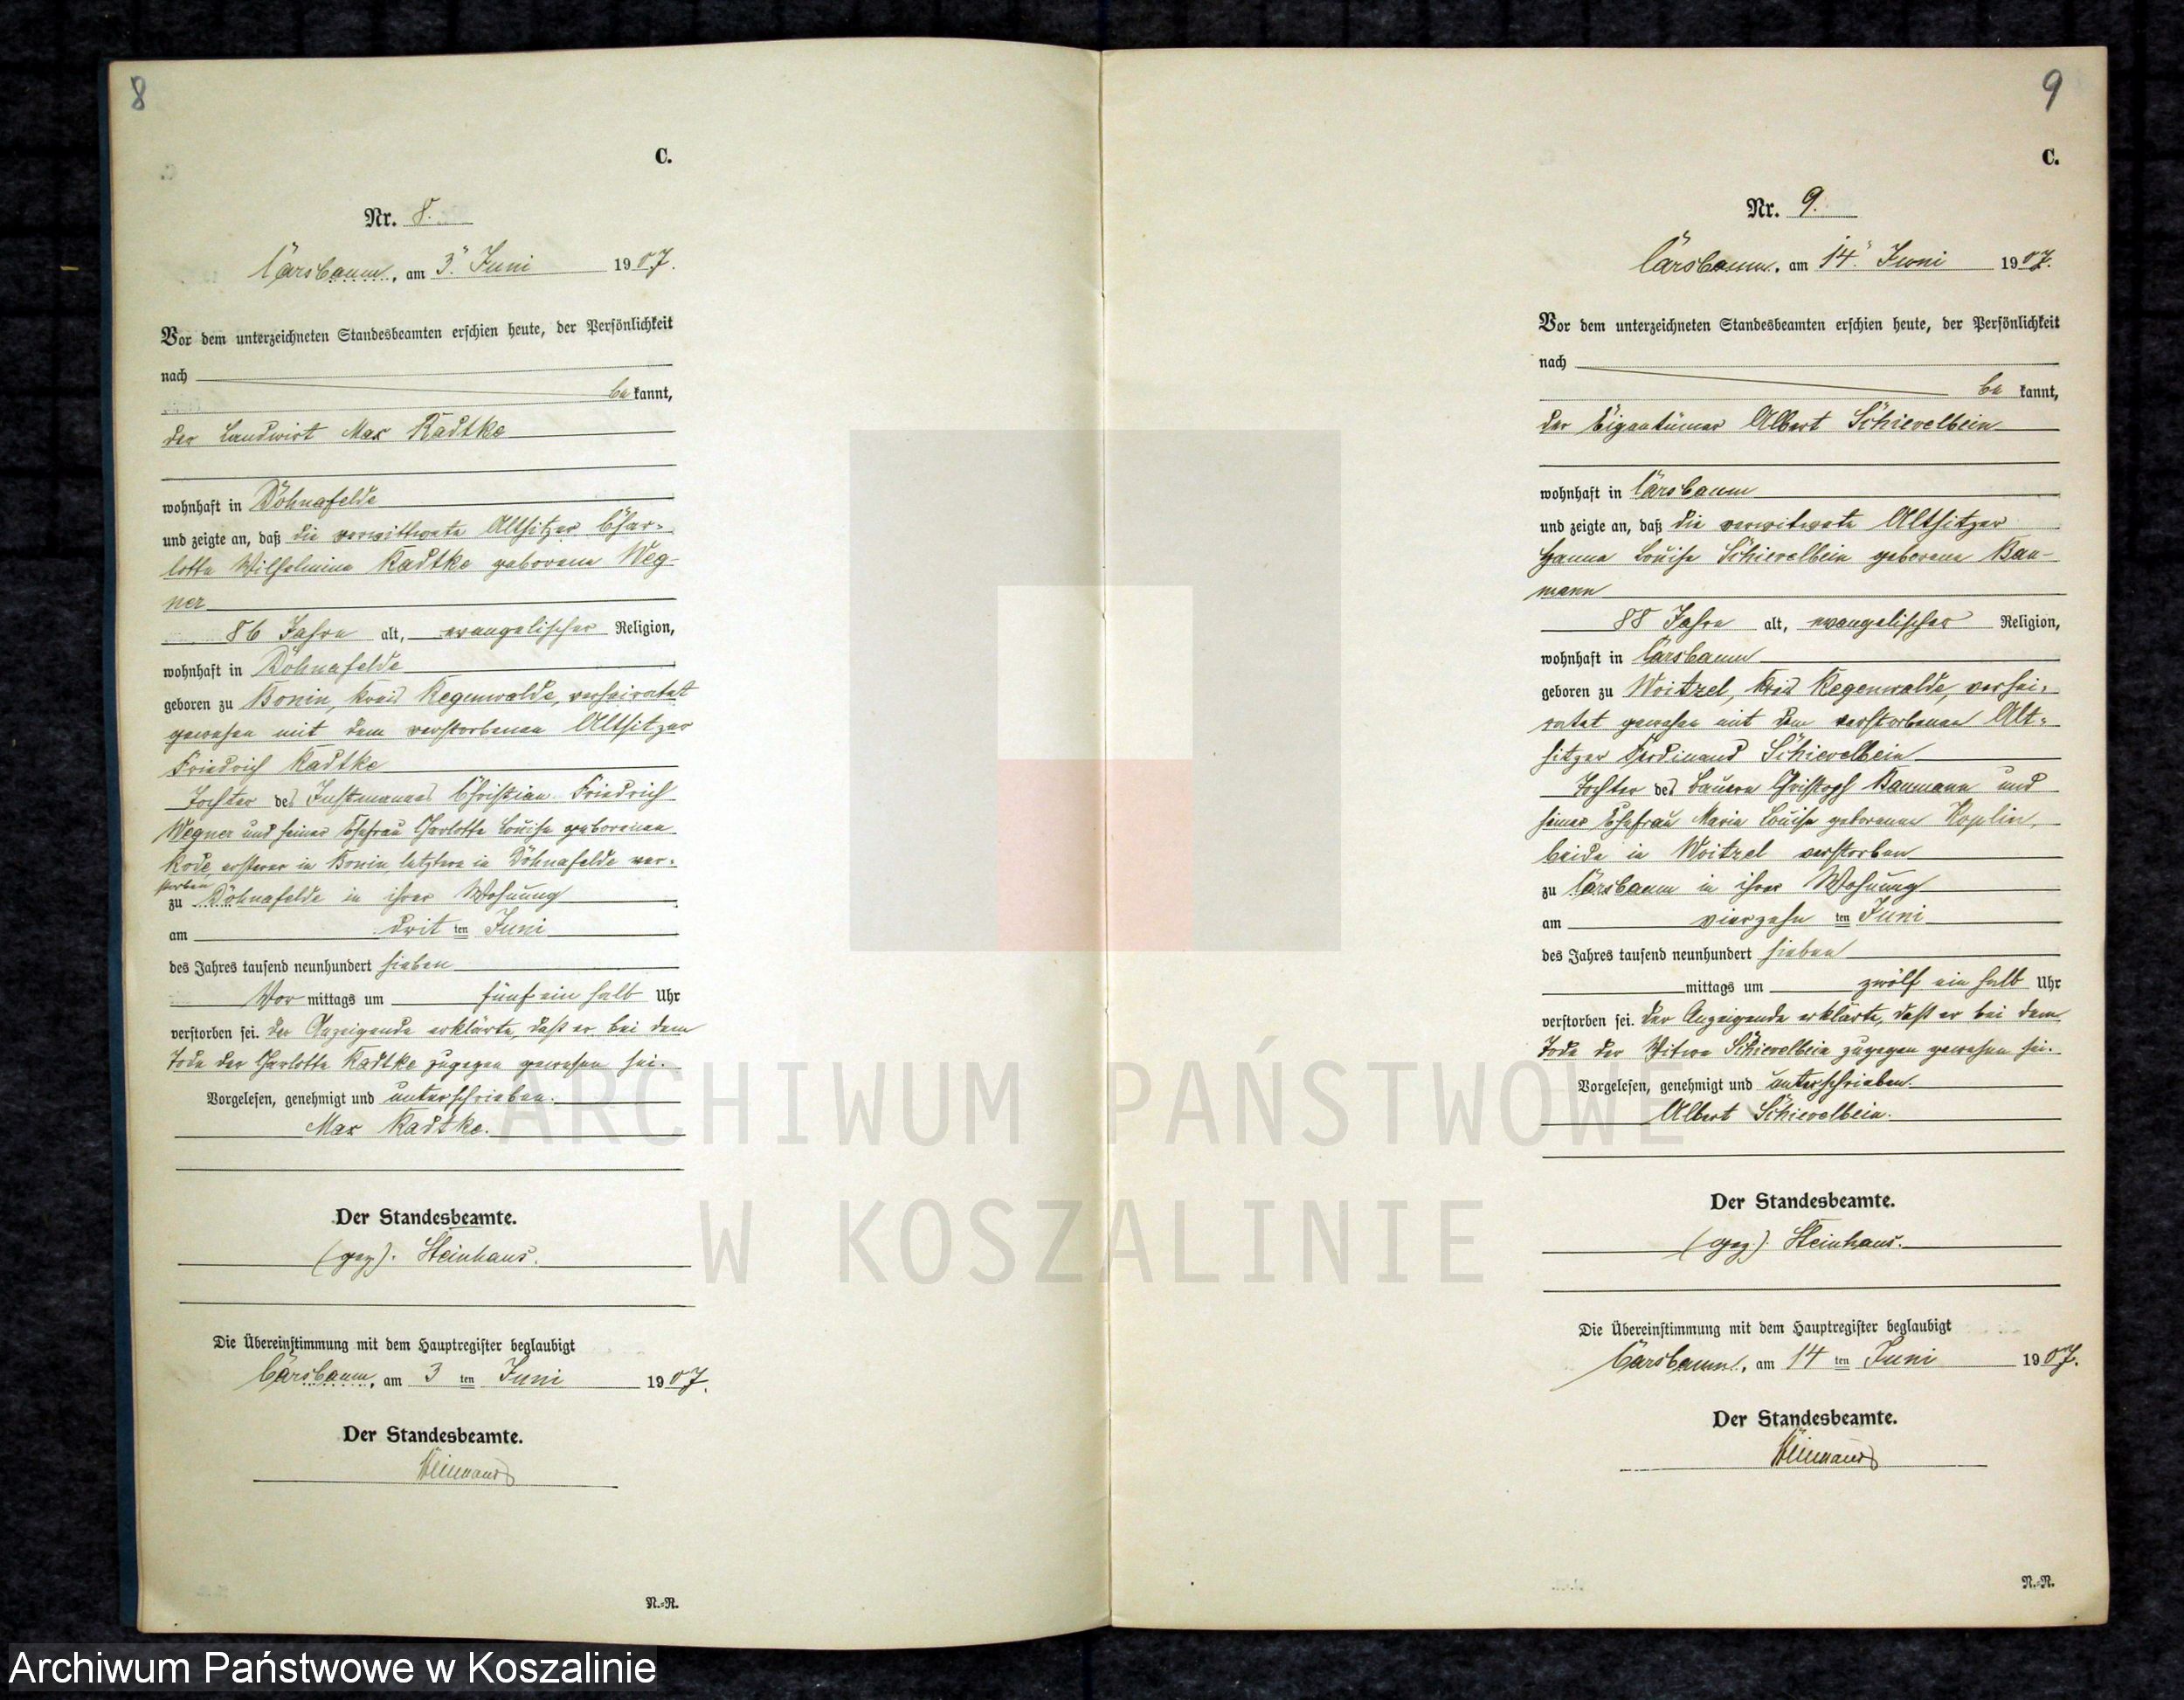 8
C.
Nr. 8.
Cörsbaum, am 3. Juni 1907.
Vor dem unterzeichneten Standesbeamten erschien heute, der Persönlichkeit
nach
bekannt,
der Landwirt Max Radtke
wohnhaft in Döhnafelde
und zeigte an, daß die verwittwete Altsitzer Char=
lotte Wilhelmine Radtke geborene Weg-
ner
86 Jahre alt, evangelischer Religion,
wohnhaft in Döhnafelde
geboren zu Bonin, Kreis Regenwalde, verheiratet
gewesen mit dem verstorbenen Altsitzer
Friedrich Radtke
Tochter des Instmannes Christian Friedrich
Wegner und seiner Ehefrau Charlotte Louise geborenen
Rode, ersterer in Bonin, letztere in Döhnafelde ver-
storben
zu Döhnafelde in ihrer Wohnung
am drit ten Juni
des Jahres tausend neunhundert sieben
Vor mittags um fünf ein halb Uhr
verstorben sei. Der Anzeigende erklärte, daß er bei dem
Tode der Charlotte Radtke zugegen gewesen sei.
Vorgelesen, genehmigt und unterschrieben.
Max Radtke.
Der Standesbeamte.
(gez). Steinhaus.
Die Übereinstimmung mit dem Hauptregister beglaubigt
Cörsbaum, am 3 ten Juni 1907.
Der Standesbeamte.
Steinhaus
N.=R.
9
C.
Nr. 9.
Cörsbaum, am 14. Juni 1907.
Vor dem unterzeichneten Standesbeamten erschien heute, der Persönlichkeit
nach
be kannt,
der Eigentümer Albert Schievelbein
wohnhaft in Cörsbaum
und zeigte an, daß die verwitwete Altsitzer
Hanna Louise Schievelbein geborene Bau-
mann
88 Jahre alt, evangelischer Religion,
wohnhaft in Cörsbaum
geboren zu Woitzel, Kreis Regenwalde, verhei-
ratet gewesen mit dem verstorbenen Alt-
sitzer Ferdinand Schievelbein
Tochter des Bauern Christoph Baumann und
seiner Ehefrau Marie Louise geborenen Koplin,
beide in Woitzel verstorben
zu Cörsbaum in ihrer Wohnung
am vierzehn ten Juni
des Jahres tausend neunhundert sieben
mittags um zwölf ein halb Uhr
verstorben sei. Der Anzeigende erklärte, daß er bei dem
Tode der Witwe Schievelbein zugegen gewesen sei.
Vorgelesen, genehmigt und unterschrieben.
Albert Schievelbein.
Der Standesbeamte.
(gez). Steinhaus.
Die Übereinstimmung mit dem Hauptregister beglaubigt
Cörsbaum, am 14 ten Juni 1907.
Der Standesbeamte.
Steinhaus
N.=R.
ARCHIWUM PAŃSTWOWE
W KOSZALINIE
Archiwum Państwowe w Koszalinie